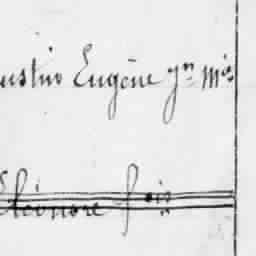 ustin Eugène Jn Mie
Eléonore fois